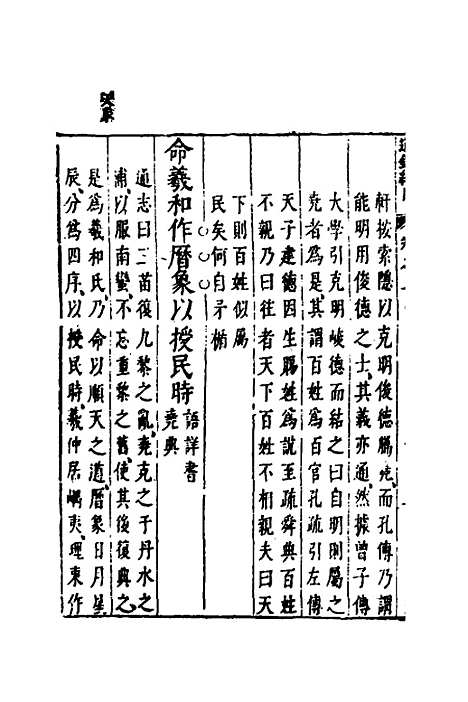 軒按索隱以克明俊德屬堯而孔傳乃謂
能明用俊德之士其義亦通然據曾子傳
大學引克明峻德而結之曰自明則屬之
堯者為是其謂百姓為百官孔疏引左傳
天子建德因生賜姓為說至疏舜典百姓
不親乃曰往者天下百姓不相親夫曰天
下則百姓似屬
民矣何自矛楯
命羲和作曆象以授民時 語詳書
堯典
通志曰三苗復九黎之亂堯克之于丹水之
浦以服南蠻不忘重黎之舊使其後復典之
是為羲和氏乃命以順天之道曆象日月星
辰分為四序以授民時羲仲居嵎夷理東作